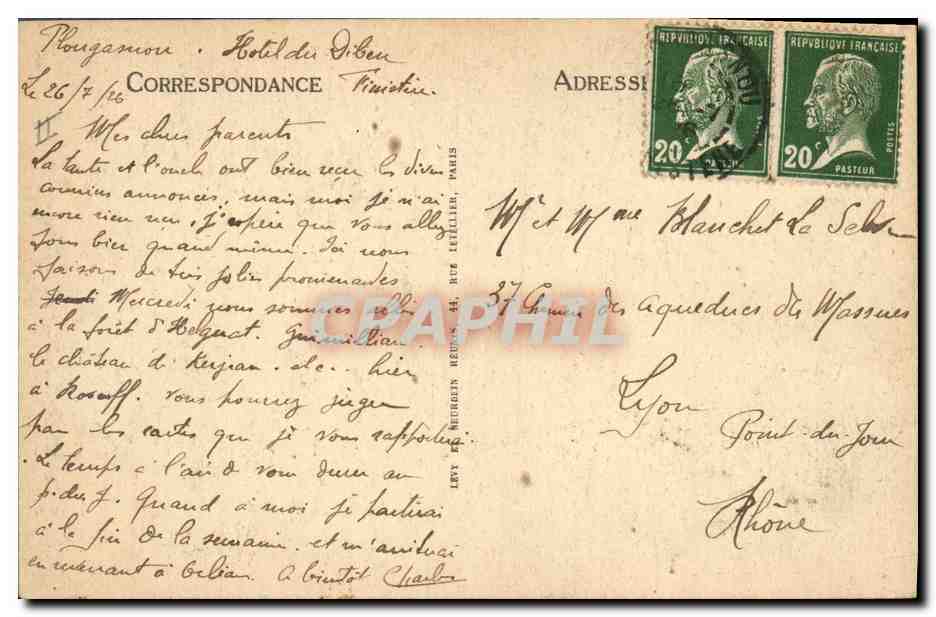 Plougasnou. Hotel du Diben
Finistère.
Le 26/7/26
CORRESPONDANCE
II
Mes chers parents
La tante et l'oncle ont bien reçu les divers
annoncés, mais moi je n'ai
encore rien reçu, j'espère que vous allez
tous bien quand même. Ici nous
faisons de très jolies promenades
Jeudi Mercredi nous sommes allés
à la forêt d'Hegoat. Guimilliau.
le château de Kerjean. etc.. hier
à Roscoff. vous pourrez juger
par les cartes que je vous rapporterai.
Le temps à l'air de vous durer au
p. du J. Quand à moi je partirai
à la fin de la semaine et m'arrêterai
en à Orléans. A bientôt Charles
LEVY ET NEURDEIN RÉUNIS, 44, RUE LETELLIER, PARIS
ADRESSE
REPVBLIQVE FRANÇAISE
20c
PASTEUR
REPVBLIQVE FRANÇAISE
POSTES
20c
PASTEUR
Mr et Mme Blanchet La
37 Chemin des aqueducs de Massues
Lyon
Point-du-Jour
Rhône
CPAPHIL